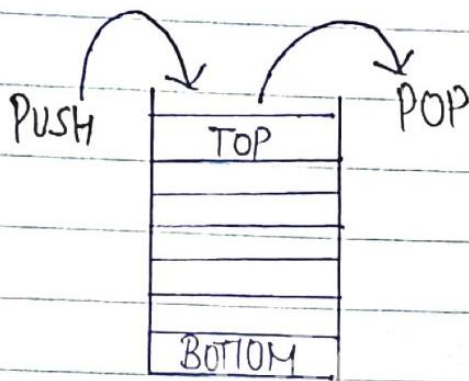 PUSH
POP
TOP
BOTTOM